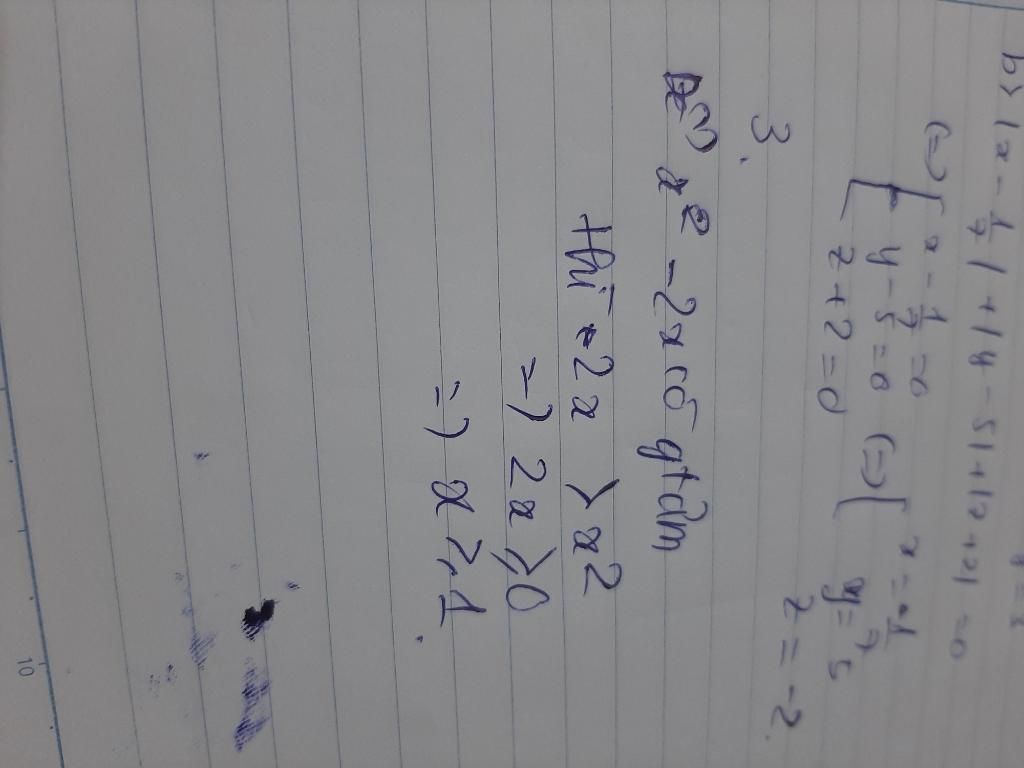 b> |x - 1/7| + |y - 5| + |z + 2| = 0
(=) [ x - 1/7 = 0
y - 5 = 0 (=) [ x = 1/7
z + 2 = 0 y = 5
z = -2
3.
x² - 2x có gtâm
thì 2x > x2
=) 2x ≥ 0
=) x ≥ 1.
10